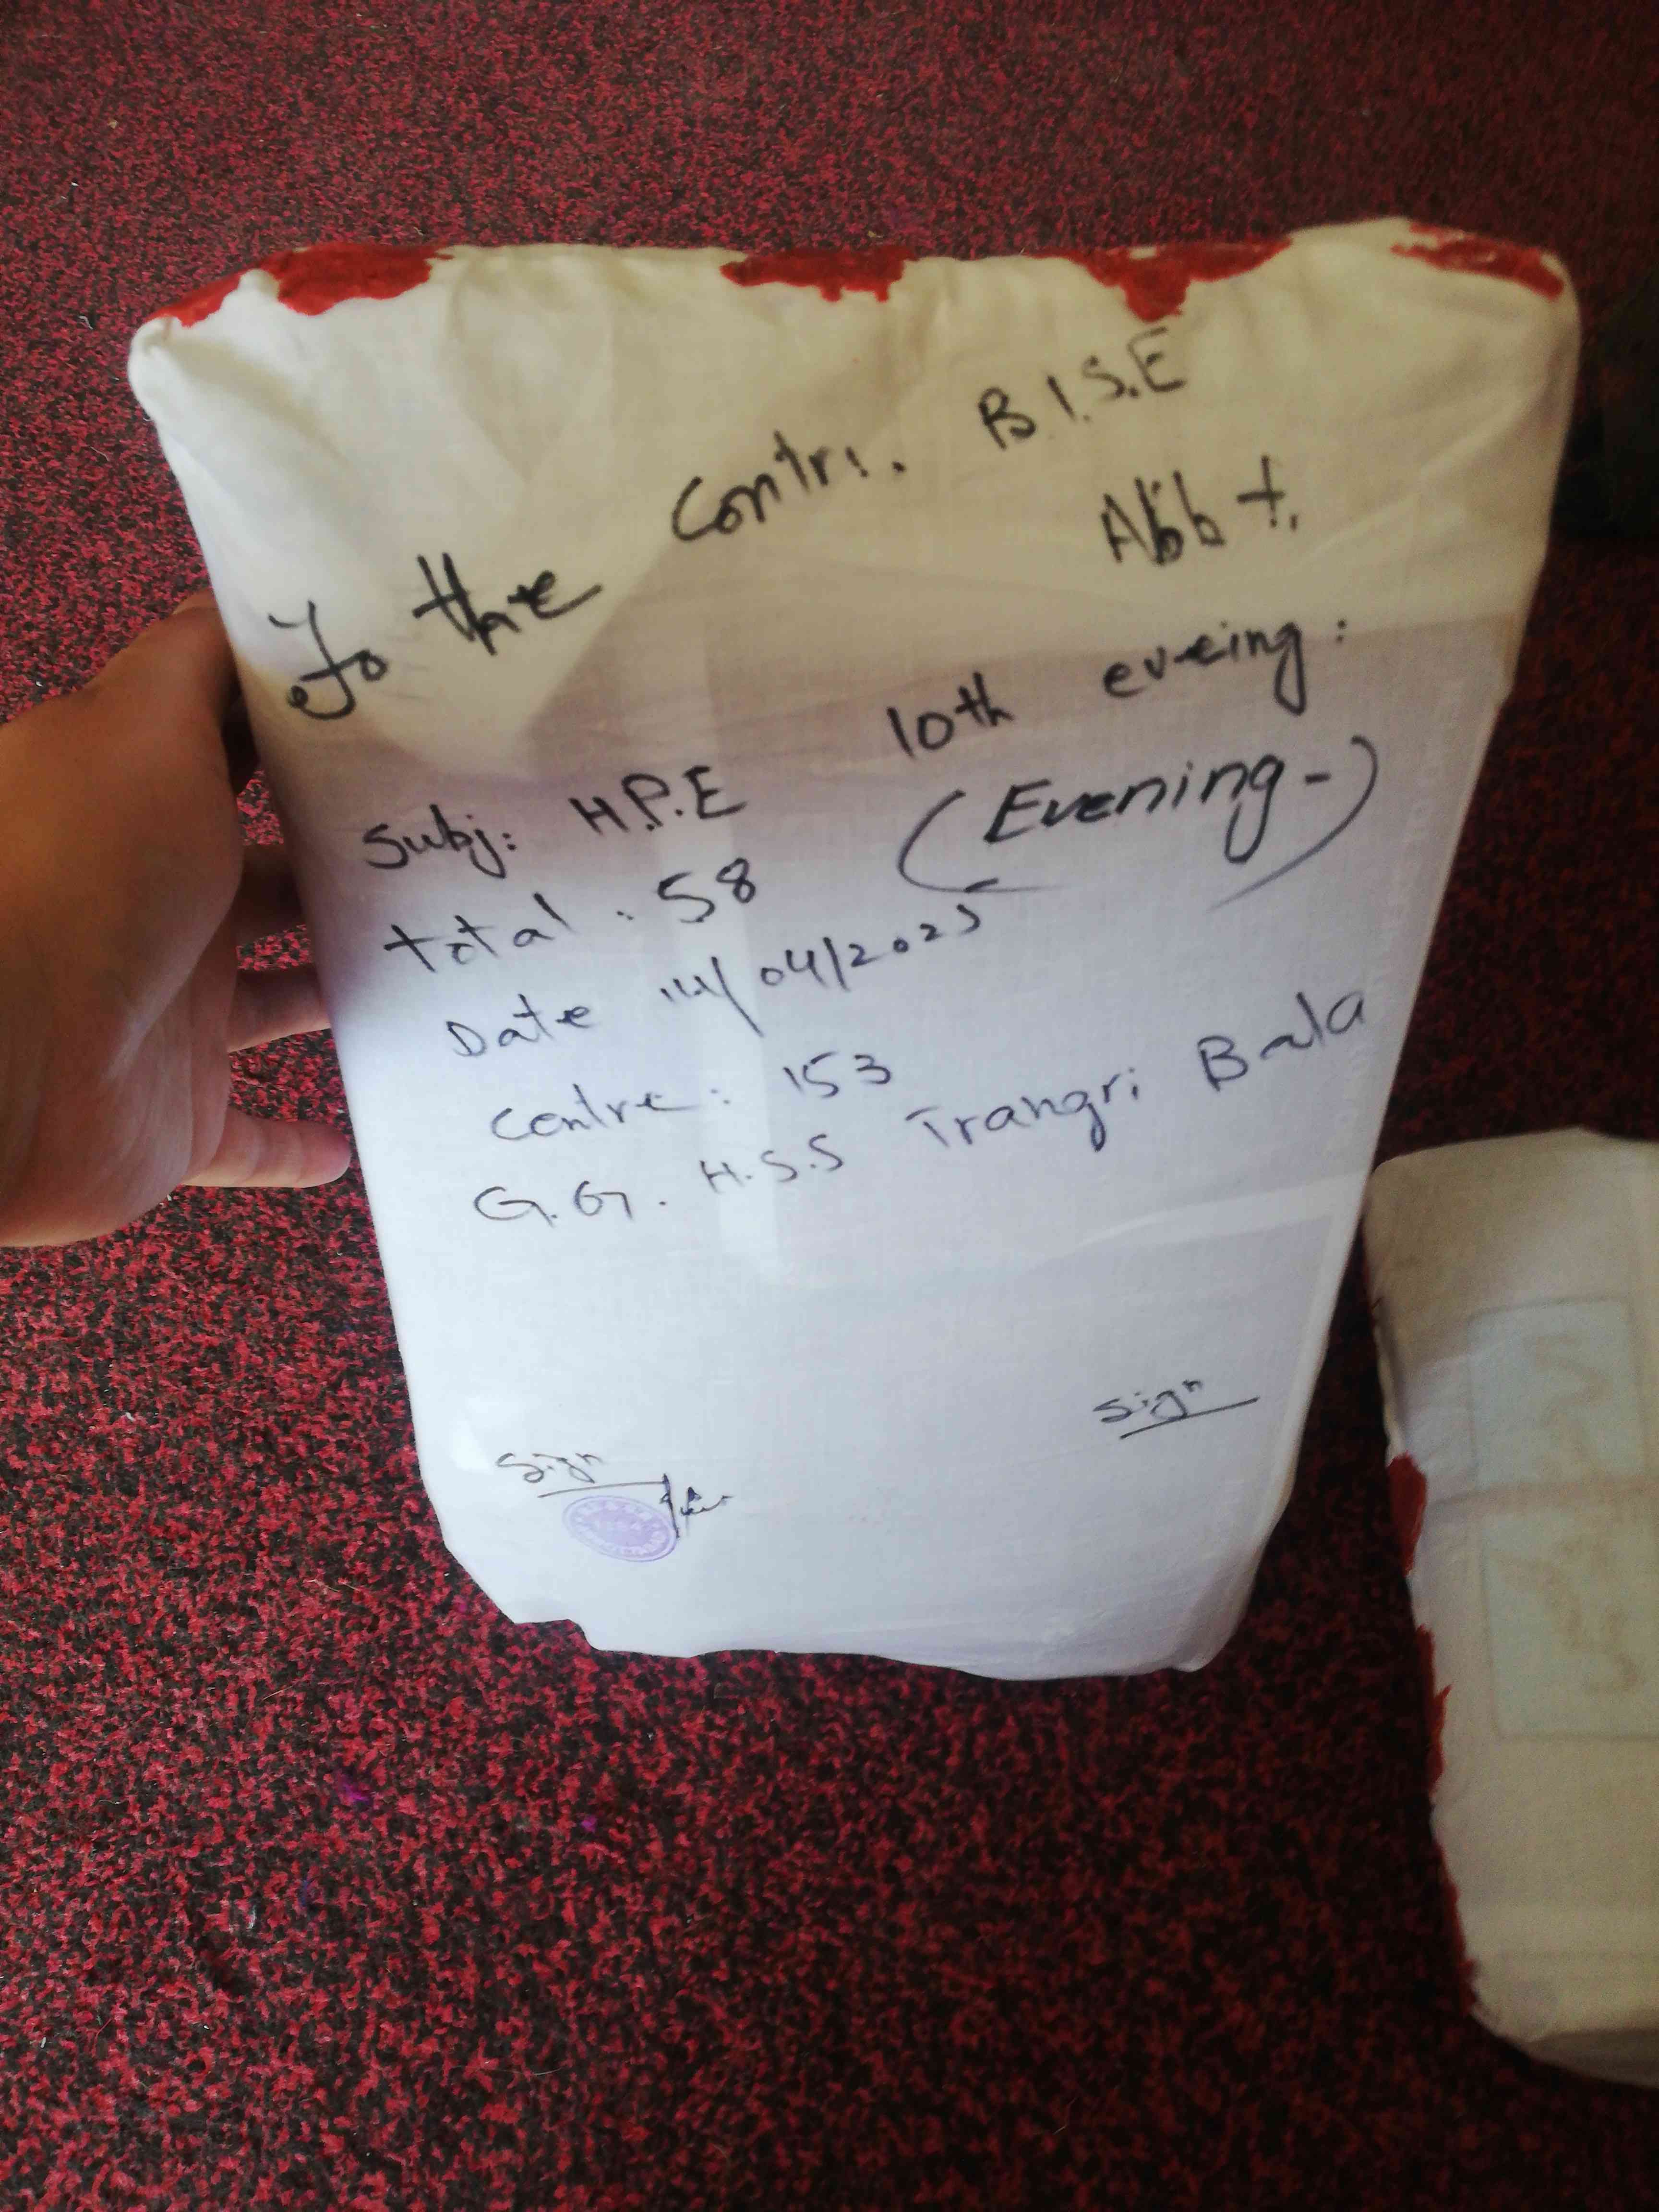 To the Contri. B.I.S.E
Abbt.
10th eveing:
Subj: H.P.E (Evening-)
total: 58
Date 14/04/2025
Centre: 153
G.G. H.S.S Trangri Bala
Sign
Sign